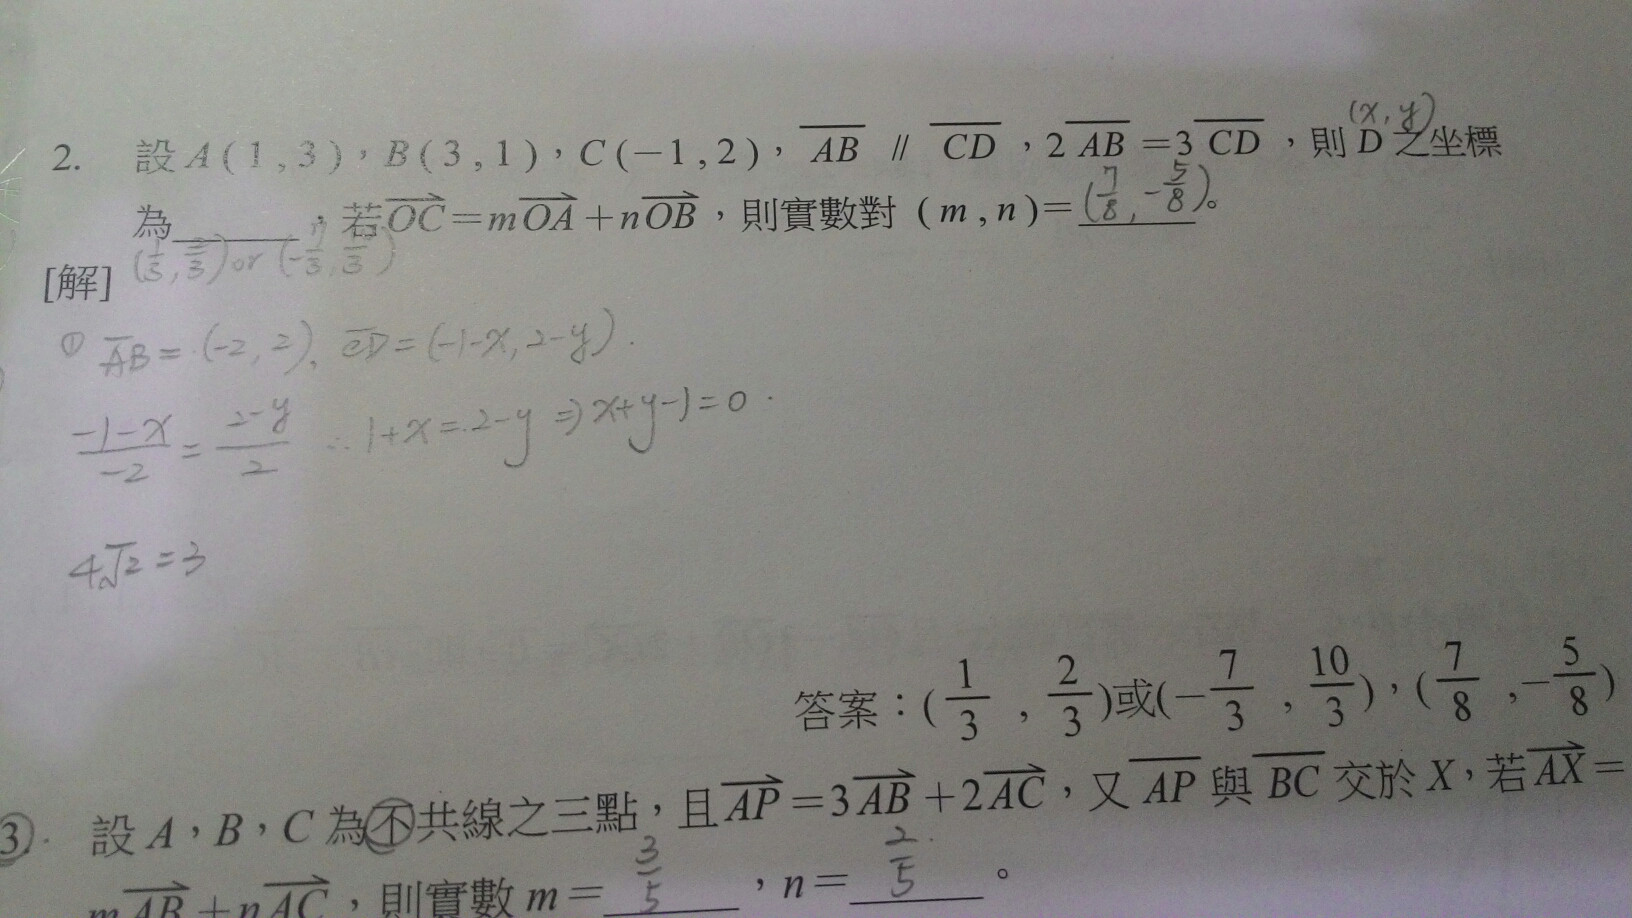 (x,y)
2. 設A(1,3),B(3,1),C(−1,2), \overline{AB} // \overline{CD} ,2\overline{AB}=3\overline{CD},則D之坐標
為______,若\overrightarrow{OC}=m\overrightarrow{OA}+n\overrightarrow{OB},則實數對(m,n)=(7/8,-5/8)。
[解] (1/3,2/3)or(-7/3,10/3)
① \overline{AB}=(-2,2), \overline{CD}=(-1-x,2-y).
(-1-x)/(-2)=(2-y)/2 ∴1+x=2-y⇒x+y-1=0.
4√2=3
答案:(1/3,2/3)或(−7/3,10/3),(7/8,−5/8)
③. 設A,B,C為不共線之三點,且\overrightarrow{AP}=3\overrightarrow{AB}+2\overrightarrow{AC},又\overline{AP}與\overline{BC}交於X,若\overrightarrow{AX}=
m\overrightarrow{AB}+n\overrightarrow{AC},則實數m=3/5,n=2/5。